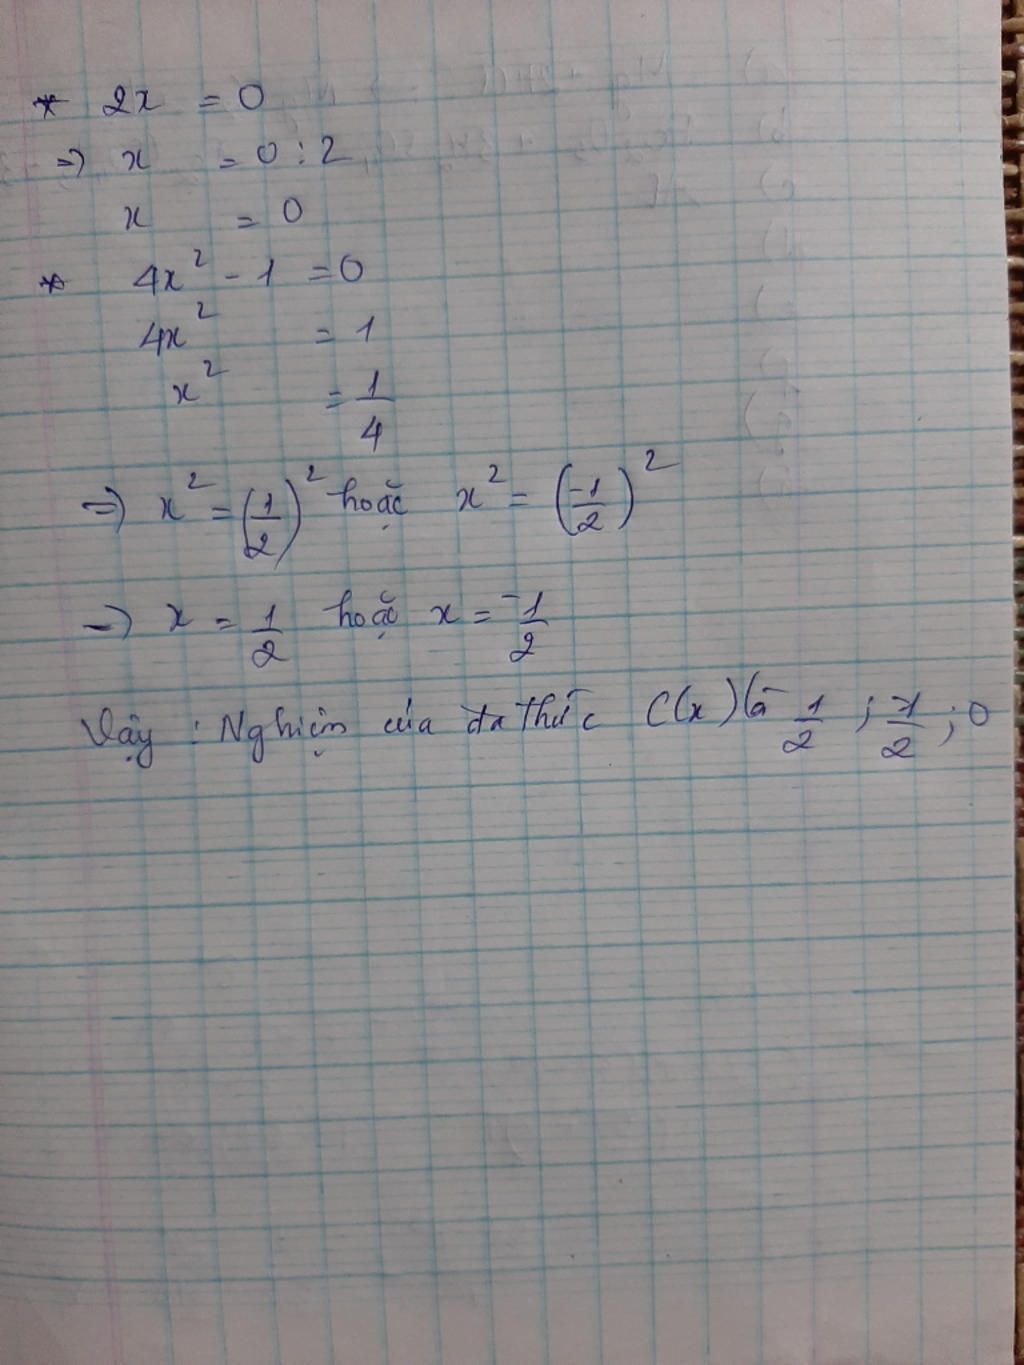 * 2x = 0
=> x = 0 : 2
x = 0
* 4x² - 1 = 0
4x² = 1
x² = 1/4
=> x² = (1/2)² hoặc x² = (-1/2)²
=> x = 1/2 hoặc x = -1/2
Vậy : Nghiệm của đa thức C(x) là 1/2 ; -1/2 ; 0